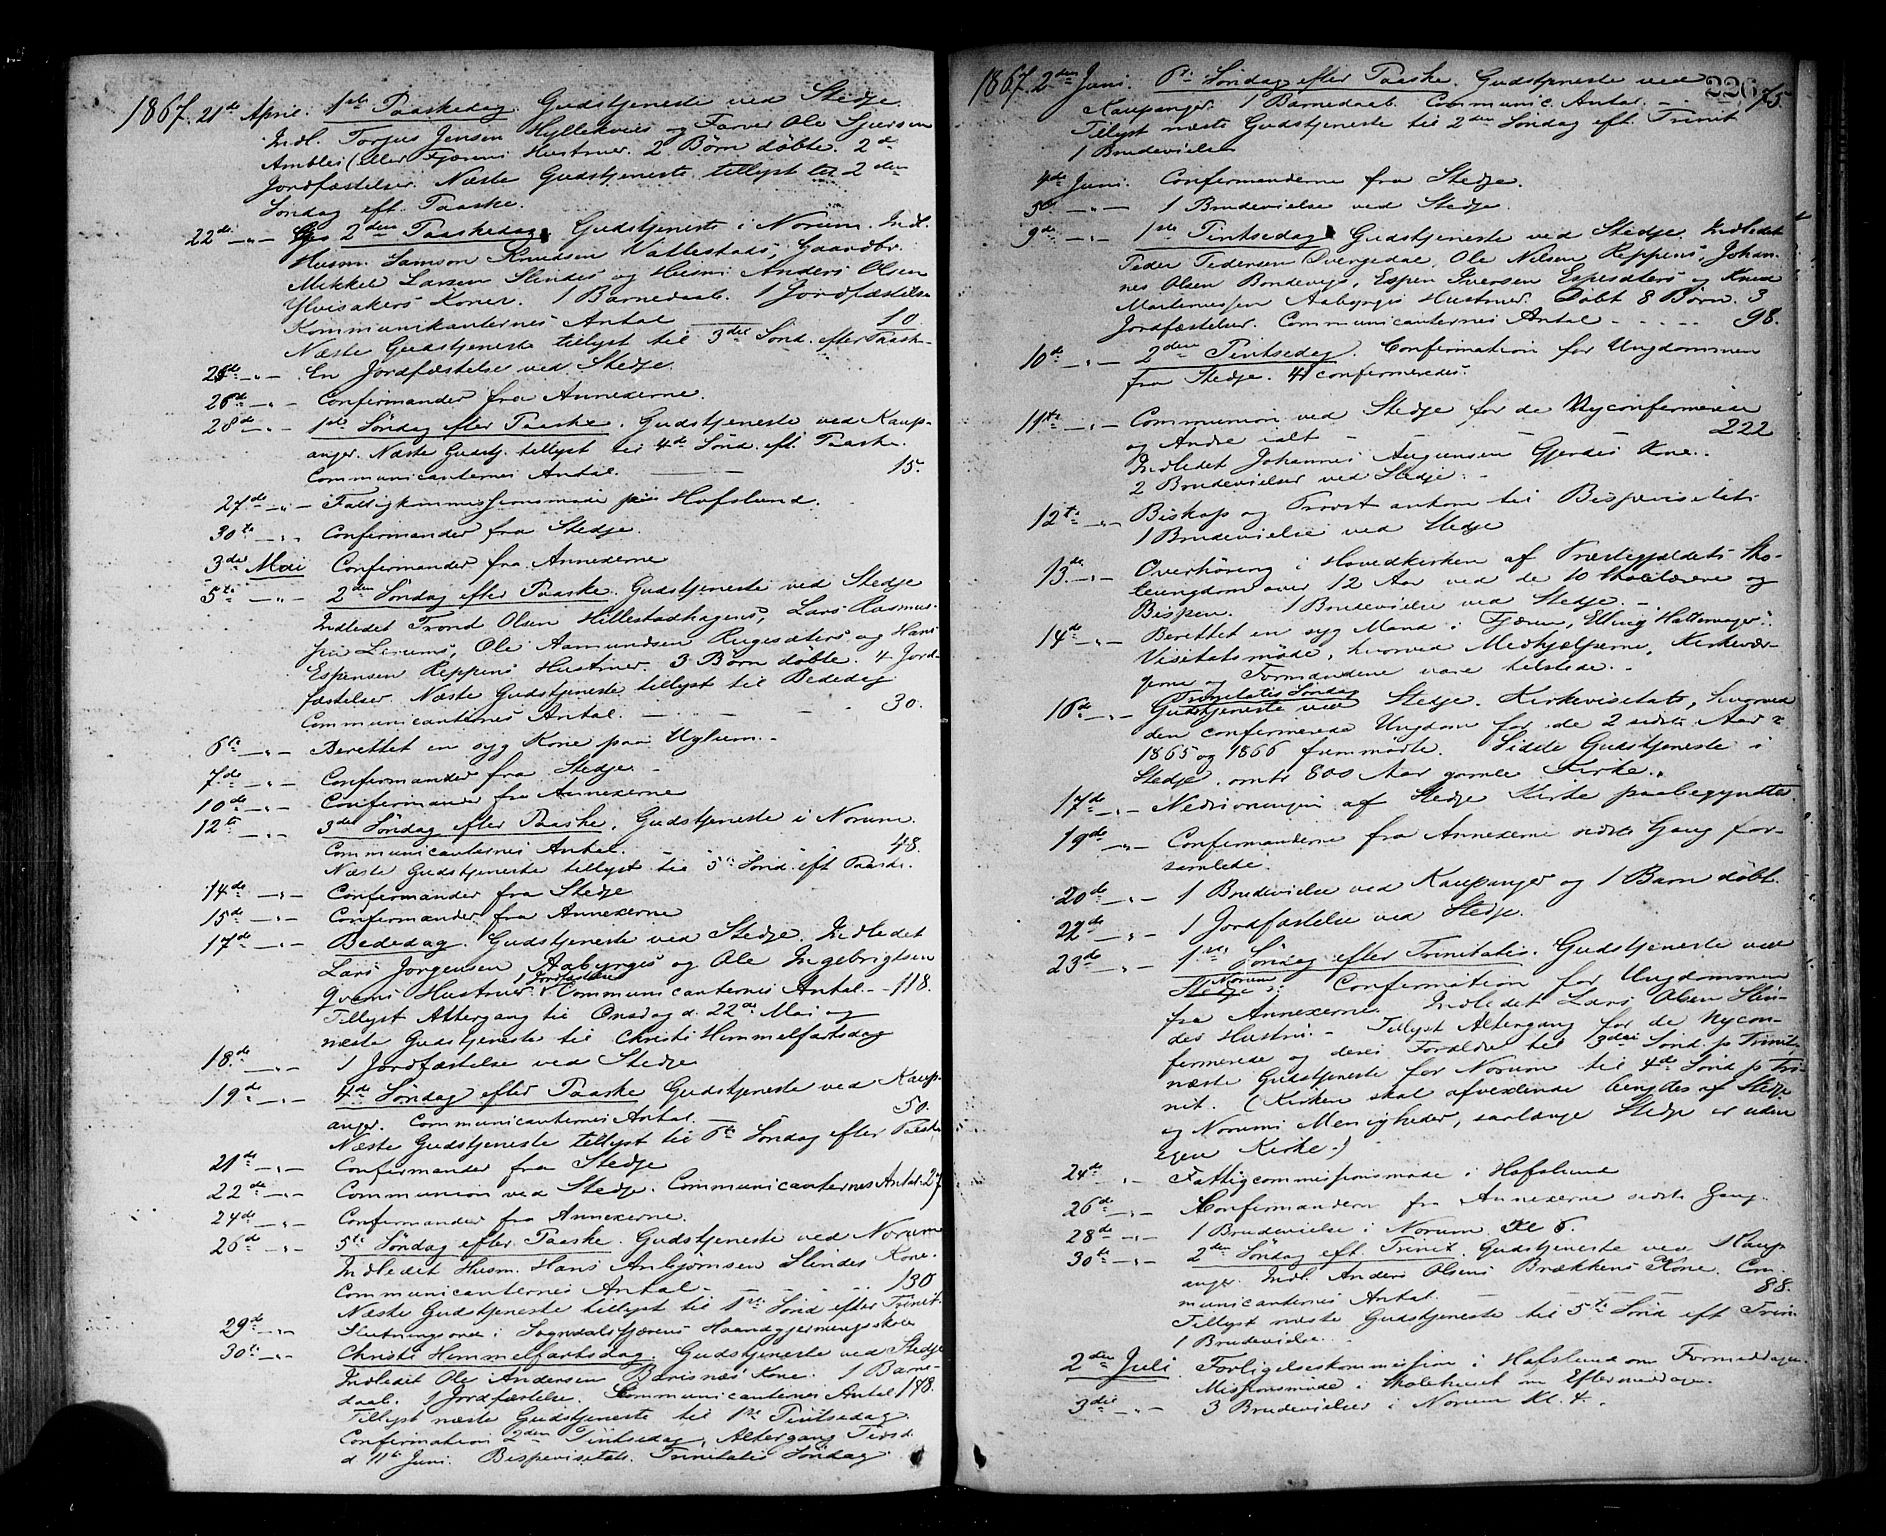 1867. 21de April. 1ste Paaskedag. Gudstjeneste ved Stedje.
Indl. Torjus Jensen Hyllekveis og Farver Ole Sjursen
Ambles (eller Fjærens Hustruer. 2 Børn døbte. 2de
Jordfæstelser. Næste Gudstjeneste tillyst til 2den
Søndag eft. Paaske.
22de — " — 2den Paaskedag. Gudstjeneste i Norum. Indl.
Husm. Samson Knudsen Vattestads, Gaardbr.
Mikkel Larsen Slindes og Husm. Anders Olsen
Ylvisakers Koner. 1 Barnedaab. 1 Jordfæstelse
Kommunikanternes Antal — 10.
Næste Gudstjeneste tillyst til 3die Sønd. efter Paaske
25de — " — En Jordfæstelse ved Stedje.
26de — " — Confirmander fra Annexerne.
28de — " — 1ste Søndag efter Paaske. Gudstjeneste ved Kaup-
anger. Næste Gudstj. tillyst til 4de Sønd. eft. Paaske.
Communicanternes Antal. — 15.
27de — " — Fattigkommissionsmøde paa Hofslund.
30te — " — Confirmander fra Stedje.
3die Mai Confirmander fra Annexerne
5te — " — 2den Søndag efter Paaske. Gudstjeneste ved Stedje
Indledet Trond Olsen Hillestadhagens, Lars Rasmus-
paa Lerums, Ole Aamundsen Rugesæters og Hans
Espensen Reppens Hustruer. 3 Børn døbte. 4 Jord-
fæstelser. Næste Gudstjeneste tillyst til Bededag
Communicanternes Antal. — 30.
6te — " — Berettet en syg Kone paa Uglum. -
7de — " — Confirmander fra Stedje -
10de — " — Confirmander fra Annexerne
12te — " — 3die Søndag efter Paaske. Gudstjeneste i Norum.
Communicanternes Antal. 48.
Næste Gudstjeneste tillyst til 5te Sønd. eft Paaske.
14de — " — Confirmander fra Stedje
15de — " — Confirmander fra Annexerne
17de — " — Bededag. Gudstjeneste ved Stedje. Indledet
Lars Jørgensen Aabyrges og Ole Ingebrigtsen
1 Jordfæstelse
Qvams Hustruer. Communicanternes Antal. - - 118.
Tillyst Altergang til Onsdag d. 22de Mai og
næste Gudstjeneste til Christi Himmelfartsdag
18de — " — 1 Jordfæstelse ved Stedje
19de — " — 4de Søndag efter Paaske Gudstjeneste ved Kaup-
anger. Communicanternes Antal. — 50.
Næste Gudstjeneste tillyst til 6te Søndag efter Paaske
21de — " — Confirmander fra Stedje
22de — " — Communion ved Stedje. Communicanternes Antal. 27
24de — " — Confirmander fra Annexerne.
26de — " — 5te Søndag efter Paaske. Gudstjeneste ved Norum
Indledet Husm. Hans Anbjørnsen Slindes Kone.
Communicanternes Antal - 130
Næste Gudstjeneste tillyst til 1ste Sønd efter Trinit.
29de — " — i Sogndalsfjærens Haandgjerningsskole
30te — " — Christi Himmelfartsdag. Gudstjeneste ved Stedje
Indledet Ole Andersen Barsnes Kone. 1 Barne-
daab. 1 Jordfæstelse. Communicanternes Antal 148.
Tillyst næste Gudstjeneste til 1ste Pintsedag
Confirmation 2den Pintsedag, Altergang Tirsd.
d 11te Juni. Bispevisitats. Trinitatis Søndag
226 75
1867. 2den Juni. 6te Søndag efter Paaske. Gudstjeneste ved
Kaupanger. 1 Barnedaab. Communic. Antal. -
Tillyst næste Gudstjeneste til 2den Søndag eft. Trinit
1 Brudevielse
4de Juni. Confirmanderne fra Stedje.
5te — " — 1 Brudevielse ved Stedje.
9de — " — 1ste Pintsedag Gudstjeneste ved Stedje. Indledet
Peder Pedersen Dvergedal, Ole Nilsen Reppens, Johan-
nes Olsen Bondevigs, Espen Iversen Espesæters og Knud
Martenussen Aabyrges Hustruer. Døbt 8 Børn. 3
Jordfæstelser. Communicanternes Antal - - - - 98.
10de — " — 2den Pintsedag. Confirmation for Ungdommen
fra Stedje. 41 confirmeredes.
11te — " — Communion ved Stedje for de Nyconfirmerede
og Andre ialt - 222
Indledet Johannes Gjerdes Kone..
2 Brudevielser ved Stedje. -
12te — " — Biskop og Provst ankom til Bispevisitats
1 Brudevielse ved Stedje
13de — " — Overhøring i Hovedkirken af Præstegjældets Sko-
leungdom over 12 Aar ved de 10 Skolelærere og
Bispen. 1 Brudevielse ved Stedje -
14de — " — Berettet en syg Mand i Fjæren, Elling Hattemager.
Visitatsmøde, hvorved Medhjælperne, Kirkevær-
gerne og Formændene vare tilstede. -
Trinitatis Søndag
16de — " — Gudstjeneste ved Stedje. Kirkevisitats, hvorved
den confirmerede Ungdom for de 2 sidste Aar
1865 og 1866 fremmødte. Sidste Gudstjeneste i
Stedje omtr 800 Aar gamle Kirke..
17de — " — Nedrivningen af Stedje Kirke paabegyndtes.
19de — " — Confirmanderne fra Annexerne sidste Gang for-
samlede.
20de — " — 1 Brudevielse ved Kaupanger og 1 Barn døbt.
22de — " — 1 Jordfæstelse ved Stedje.
23de — " — 1ste Søndag efter Trinitatis. Gudstjeneste ved
Norum
Stedje. Confirmation for Ungdommen
fra Annexerne. Indledet Lars Olsen Slin-
des Hustru. - Tillyst Altergang for de Nycon-
firmerede og deres Forældre til 3die Sønd. p Trinit
næste Gudstjeneste for Norum til 4de Sønd p Tri-
nit. (Kirken skal afvexlende benyttes af Stedje
og Norums Menigheder, saalænge Stedje er uden
egen Kirke.)
24de — " — Fattigcommissionsmøde i Hofslund
26de — " — Confirmandern fra Annexerne sidste Gang.
28de — " — 1 Brudevielse i Norum Kl 6.
30te — " — 2den Søndag eft. Trinit. Gudstjeneste ved Kaup
anger. Indl. Anders Olsens Brækkens Kone. Com-
municanternes Antal — 88.
Tillyst næste Gudstjeneste til 5te Sønd eft Trin.
1 Brudevielse. -
2den Juli. Forligelseskommission i Hofslund om Formiddagen
Missionsmøde i Skolehuset om Eftermiddagen.
3die — " — 3 Brudevielser i Norum Kl. 4.